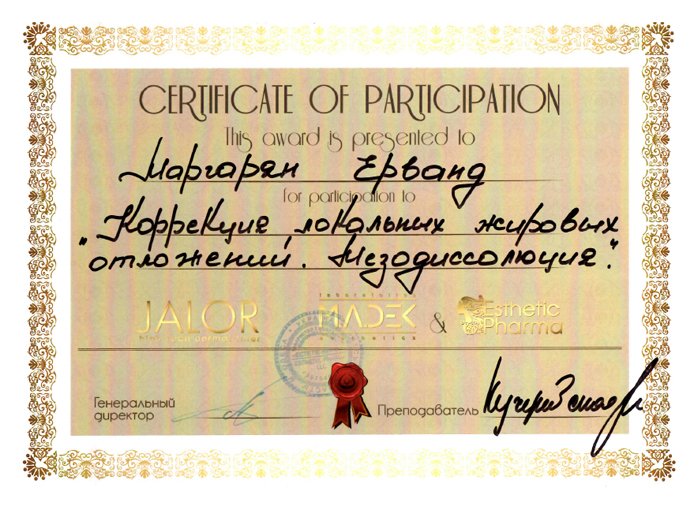 CERTIFICATE OF PARTICIPATION
This award is presented to
Маргарян Ерванд
for participation to
"Коррекция локальных жировых
отложений. Мезодиссолюция."
JALOR
laboratoires
MADEK & Esthetic Pharma
cosmetics
Генеральный
директор
Преподаватель